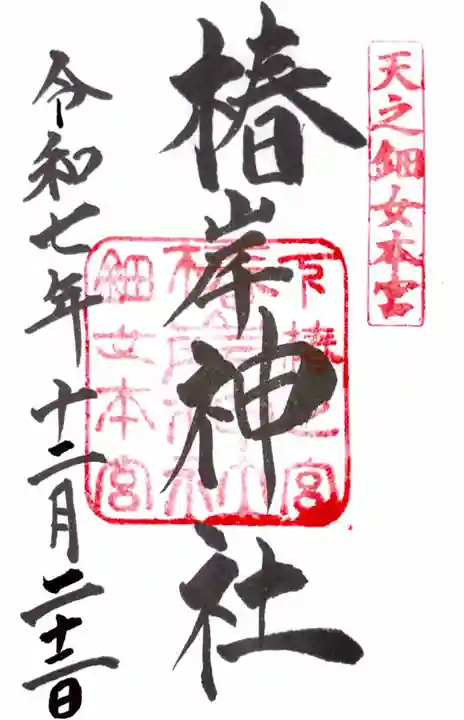 天之鈿女本宮
椿岸神社
下椿之宮
椿岸神社
鈿女本宮
令和七年十二月二十二日